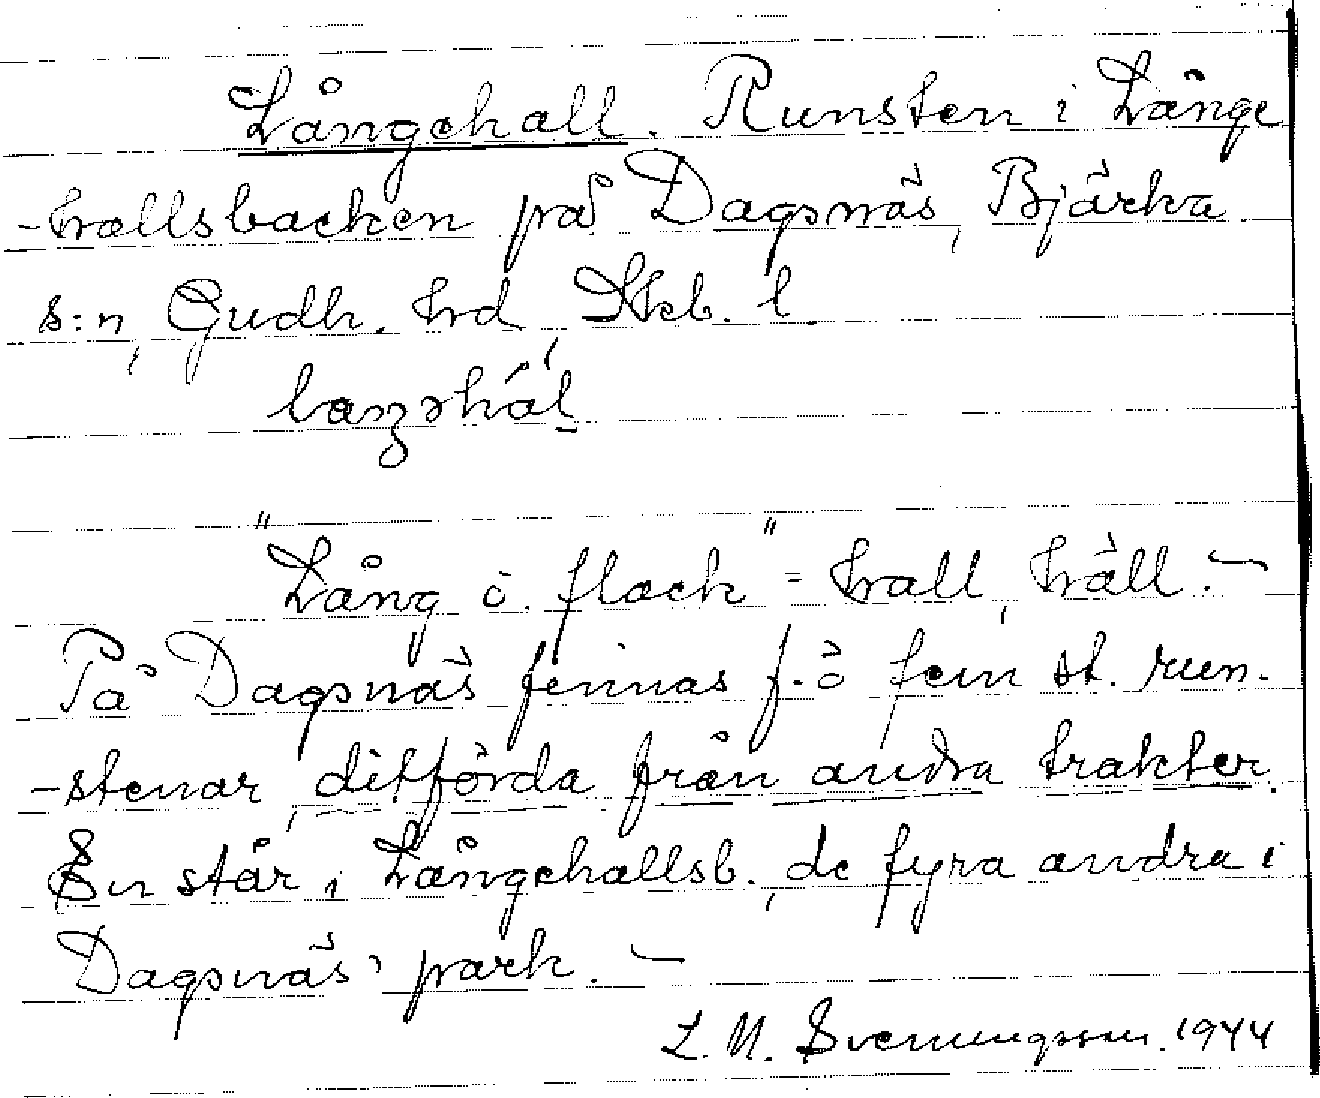 Långehall. Runsten i Långe
-hallsbacken på Dagsnäs, Bjärka
s:n, Gudh. hrd, Skb. l.
"Lång o. flack" = hall, häll. –
På Dagsnäs finnas f. ö fem st. run-
-stenar, ditförda från andra trakter.
En står i Långehallsb., de fyra andra i
Dagsnäs' park. –
L. M. Svenungsson. 1944